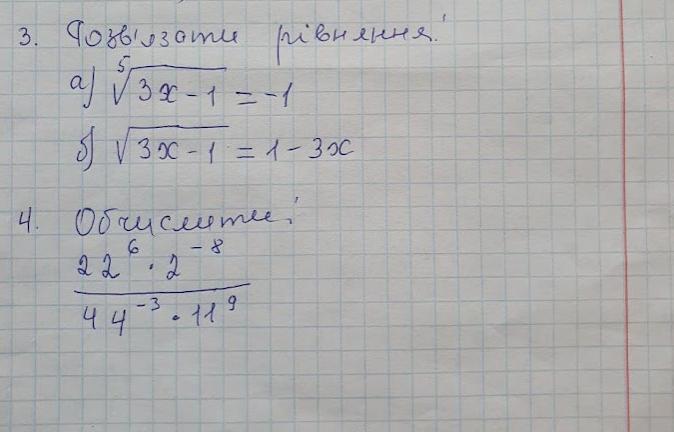 3. Розв'язати рівняння:
а) ⁵√(3x - 1) = -1
б) √(3x - 1) = 1 - 3x
4. Обчислити:
22⁶ · 2⁻⁸
44⁻³ · 11⁹